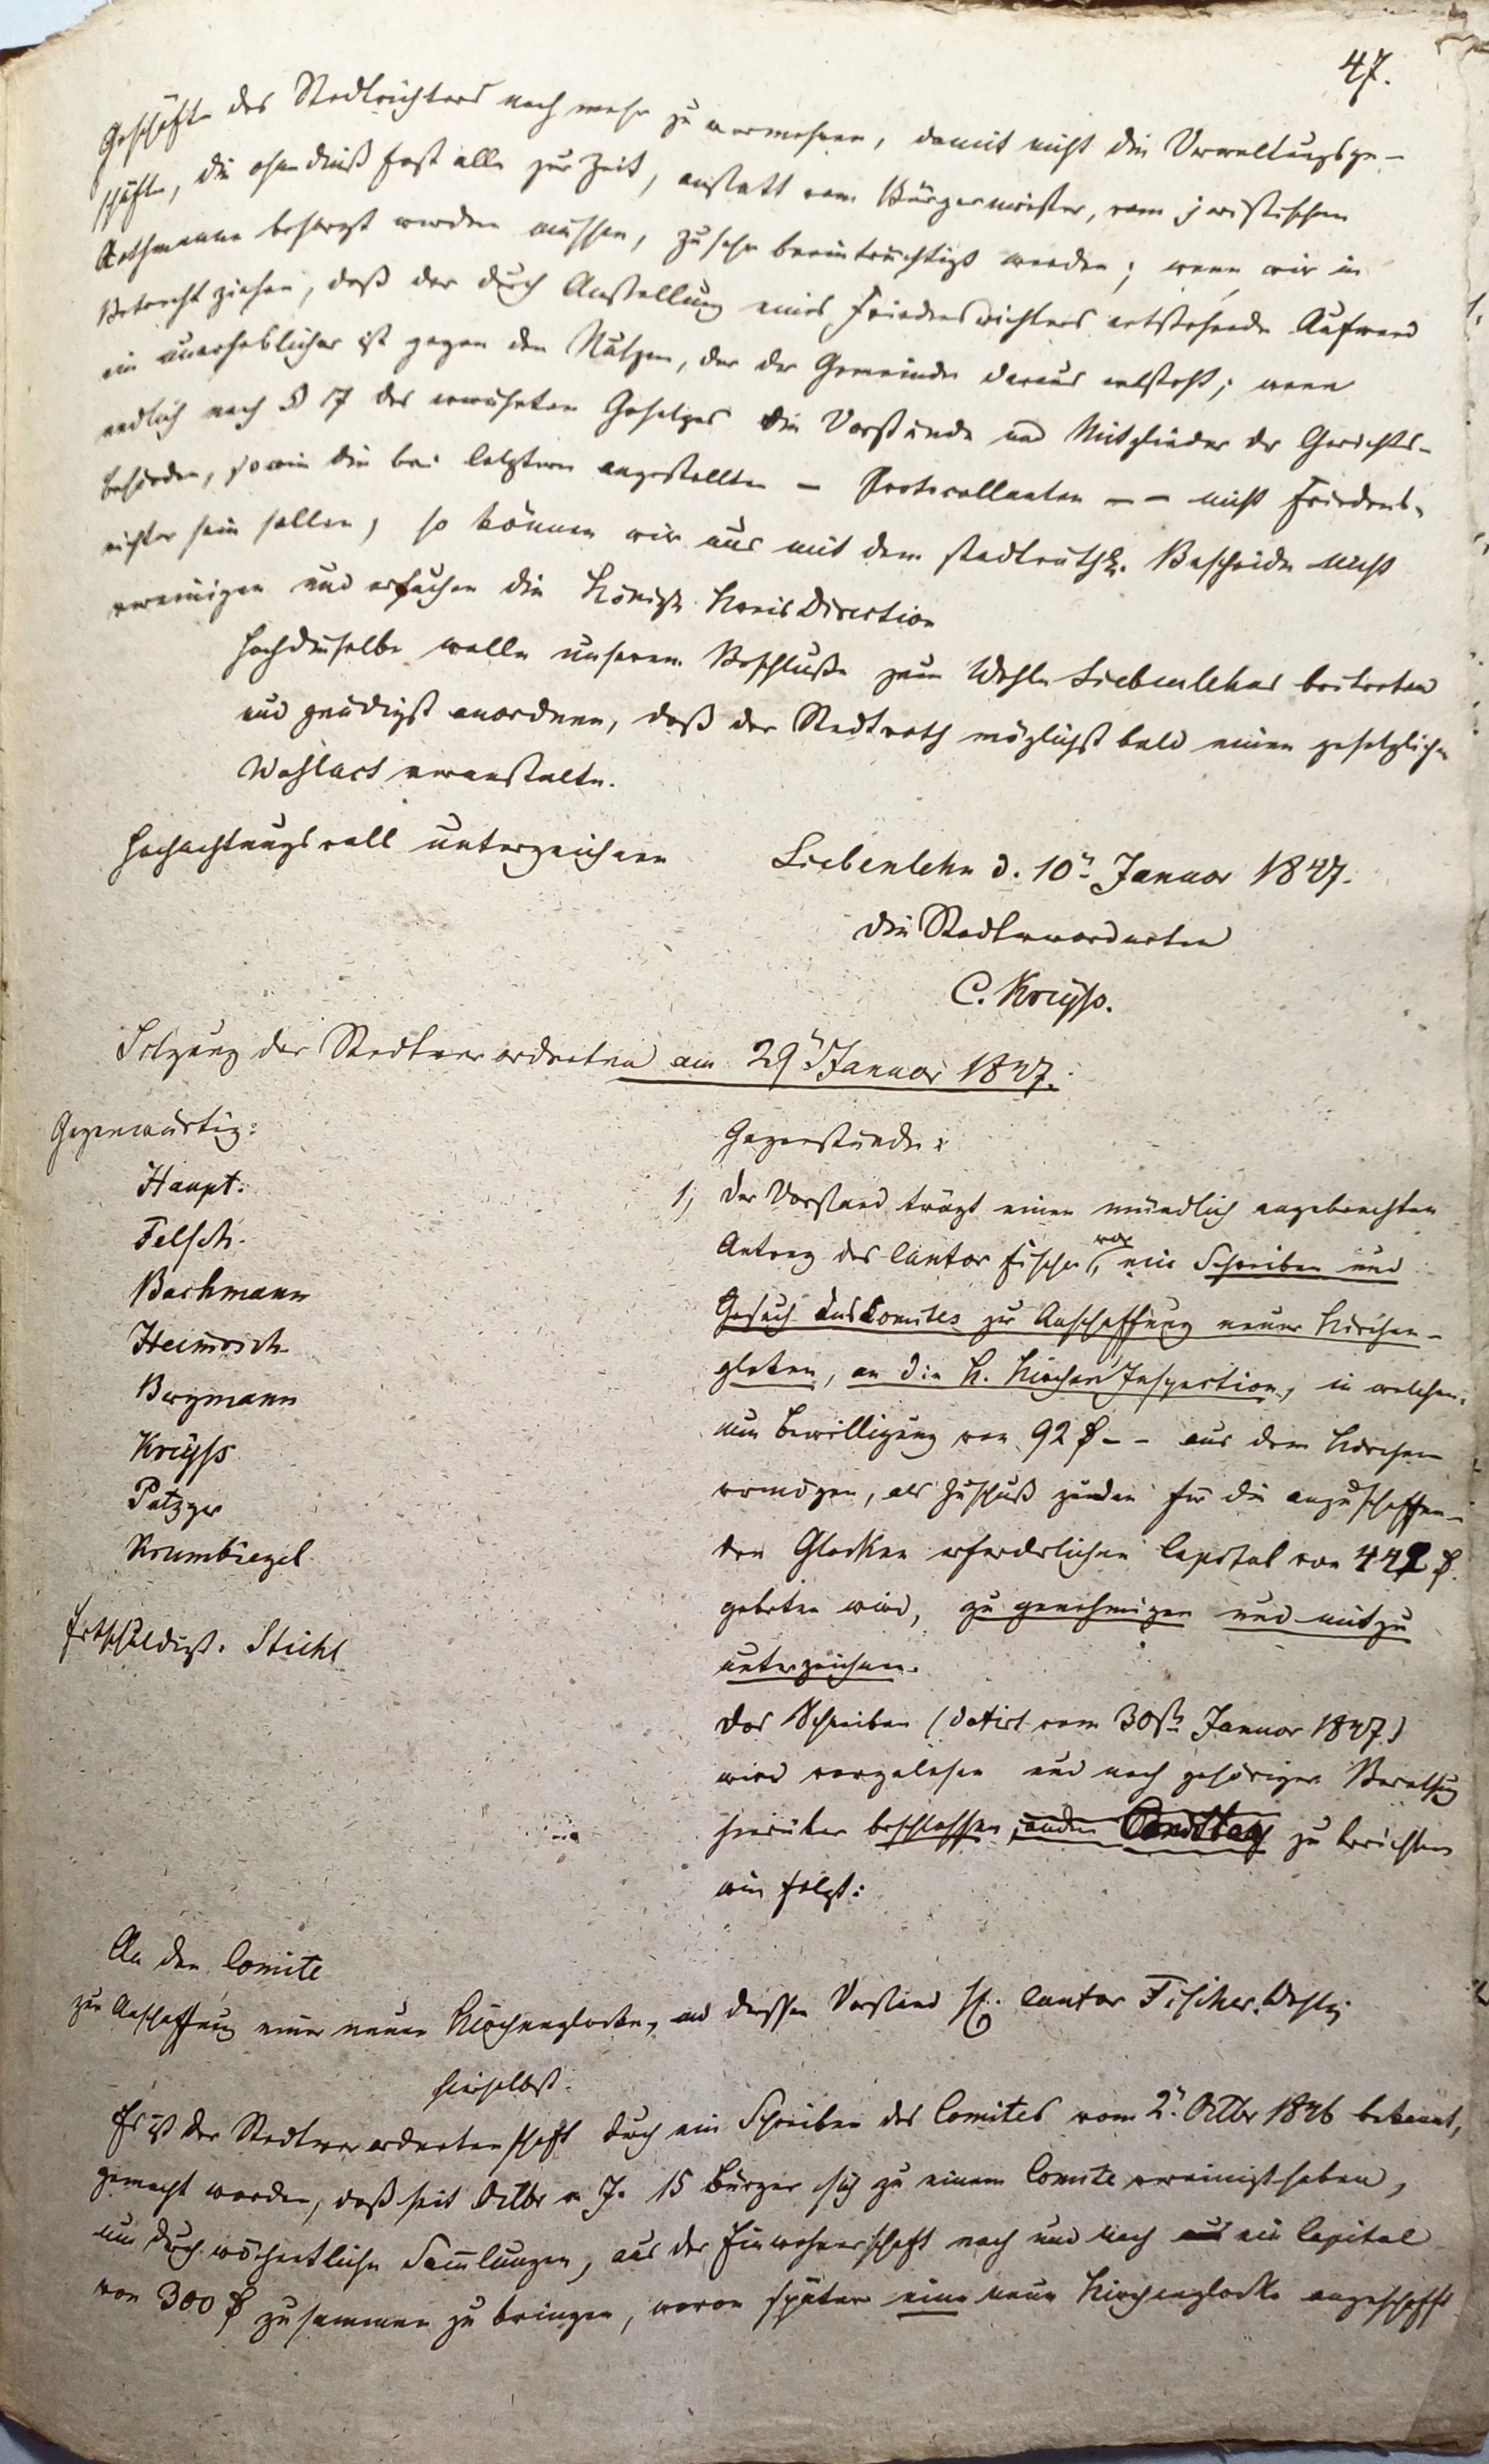 47.
Geschäfte des Stadtrichters noch mehr zu vermehren, damit nicht die Verwaltungsge-
schäfte, die ohnedieß fast alle zur Zeit, anstatt vom Bürgermeister, vom juristischen
Rathmanne besorgt werden müssen, zu sehr beeinträchtigt werden; wenn wir in
Betracht ziehen, daß der durch Anstellung eines Friedensrichters entstehende Aufwand
ein unerheblicher ist gegen den Nutzen, der der Gemeinde daraus entsteht; wenn
endlich nach § 17 des erwähnten Gesetzes die Vorstände und Mitglieder der Gerichts-
behörden, sowie die bei letztern angestellten – Protocollanten – – nicht Friedens-
richter sein sollen, so können wir uns mit dem stadträthl. Bescheide nicht
vereinigen und ersuchen die Königl. Kreis Direction
Hochdieselbe wolle unserem Beschluße zum Wohle Siebenlehns beitreten
und gnädigst anordnen, daß der Stadtrath möglichst bald einen gesetzlichen
Wahlact veranstalte.
Hochachtungsvoll unterzeichnen
Siebenlehn d. 10n Januar 1847.
die Stadtverordneten
C. Kreyß.
Sitzung der Stadtverordneten am 29n Januar 1847.
Gegenwärtig:
Haupt.
Felsch.
Bachmann
Heinrich
Bergmann
Kreyß
Patzger
Krumbiegel
Entschuldigt. Stiehl
Gegenstände:
1, der Vorstand trägt einen mündlich angebrachten
Antrag des Cantor Fischer vor, ein Schreiben und
Gesuch des Comites zur Anschaffung neuer Kirchen-
gloken, an die K. Kirchen Inspection, in welchem
um Bewilligung von 92 ₰ – – aus dem Kirchen
vermögen, als Zuschuß zu dem für die anzuschaffen-
den Glocken erforderlichen Capital von 442 ₰
gebeten wird, zu genehmigen und mitzu
unterzeichnen.
Das Schreiben (datirt vom 30stn Januar 1847)
wird vorgelesen und nach gehöriger Berathung
hierüber beschlossen, zu berichten
wie folgt:
An den Comite
zur Anschaffung einer neuen Kirchenglocke, und dessen Vorstand H. Cantor Fischer. Wohlg
hierselbst.
Es ist der Stadtverordnetenschaft durch ein Schreiben des Comites vom 2n Octbr 1846 bekannt,
gemacht worden, daß seit Octbr v. J. 15 Bürger sich zu einem Comite vereinigt haben,
um durch wöchentliche Sam̄lungen, aus der Einwohnerschaft nach und nach ein Capital
von 300 ₰ zusammen zu bringen, wovon später eine neue Kirchenglocke angeschafft